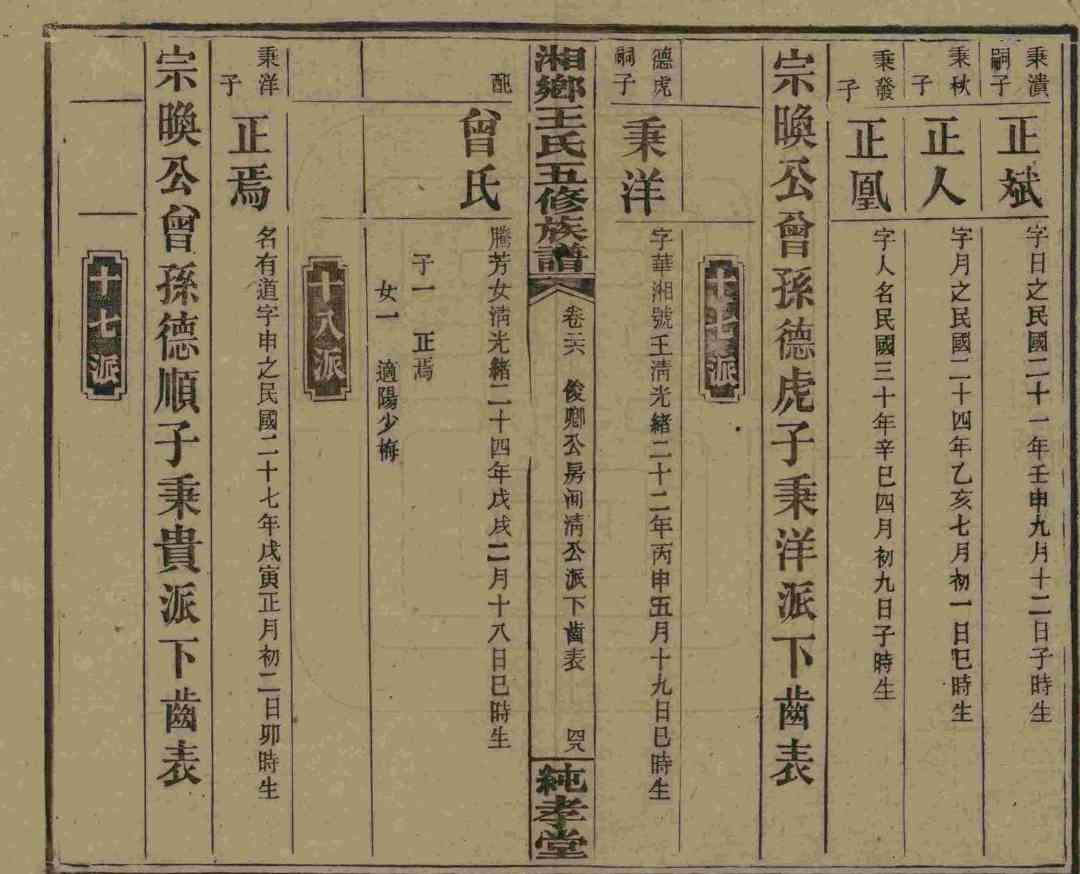 秉潰嗣子 正斌 字日之民國二十一年壬申九月十二日子時生
秉秋子 正人 字月之民國二十四年乙亥七月初一日巳時生
秉發子 正凰 字人名民國三十年辛巳四月初九日子時生
宗晚公曾孫德虎子秉洋派下齒表
十七派
德虎嗣子 秉洋 字華湘號王清光緒二十二年丙申五月十九日巳時生
湘鄉王氏五修族譜 卷六 俊鄉公房润清公派下齒表 四八 純孝堂
配 曾氏 騰芳女清光緒二十四年戊戌二月十八日巳時生
子一 正焉
女一 適陽少梅
十八派
秉洋子 正焉 名有道字申之民國二十七年戊寅正月初二日卯時生
宗晚公曾孫德順子秉貴派下齒表
十七派